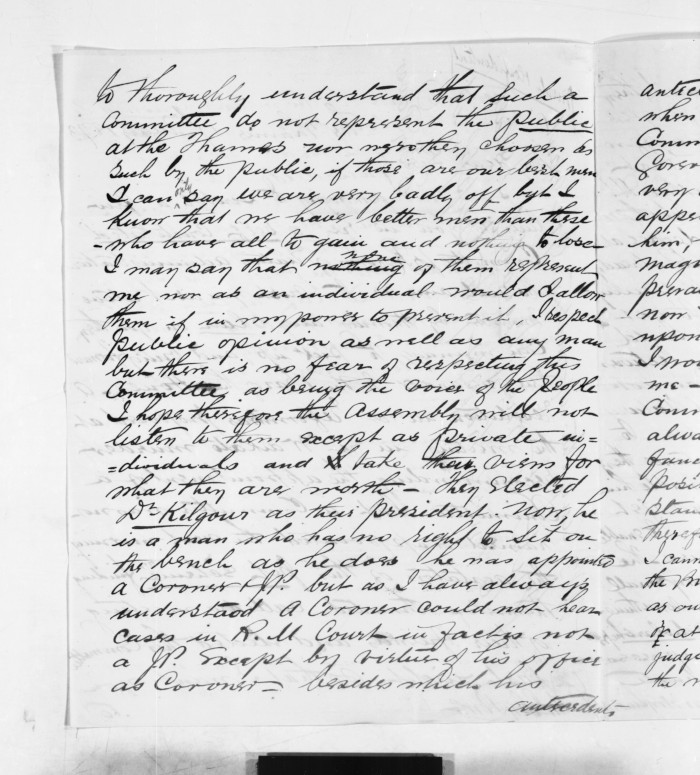 to thoroughly understand that such a
Committee do not represent the public
at the Thames nor were they chosen as
such by the public, if those are our best men
I can only say we are very badly off but I
know that we have better men than these
-who have all to gain and nothing to lose
I may say that nothing none of them represent
me nor as an individual would I allow
them if in my power to prevent it, I respect
Public opinion as well as any man
but there is no fear of respecting this
Committee as being the voice of the People
I hope therefore the Assembly will not
listen to them except as private in=
=dividuals and take their views for
what they are worth - They Elected
Dr Kilgour as their President. Now, he
is a man who has no right to sit on
the bench as he does he was appointed
a Coroner & JP. but as I have always
understood a Coroner could not hear
cases in R. M Court in fact is not
a JP. Except by virtue of his office
as Coroner - besides which his
antecedents
anteced
when
Comm
Gover
very
appe
him,
magis
preva
nor
upon
I wou
me -
Comm
alwa
posit
stan
therefo
I cann
the M
as ou
or at
judge
the